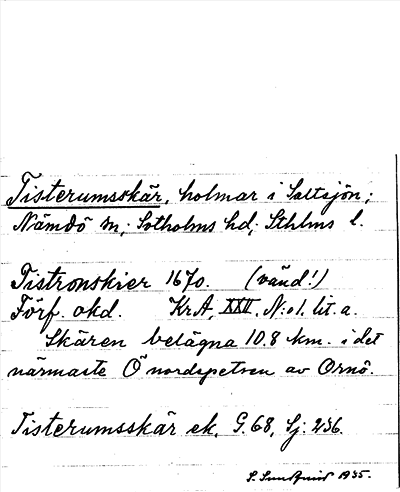 Tisterumsskär, holmar i Saltsjön;
Nämdö sn; Sotholms hd; Sthlms l.
Tistronskier 1670. (vänd!)
Förf. okd. KrA, XXV, N:o 1. lit. a.
Skären belägna 10.8 km. i det
närmaste Ö nordspetsen av Ornö.
Tisterumsskär ek. G. 68, Sj: 236.
S. Sundqvist 1935.